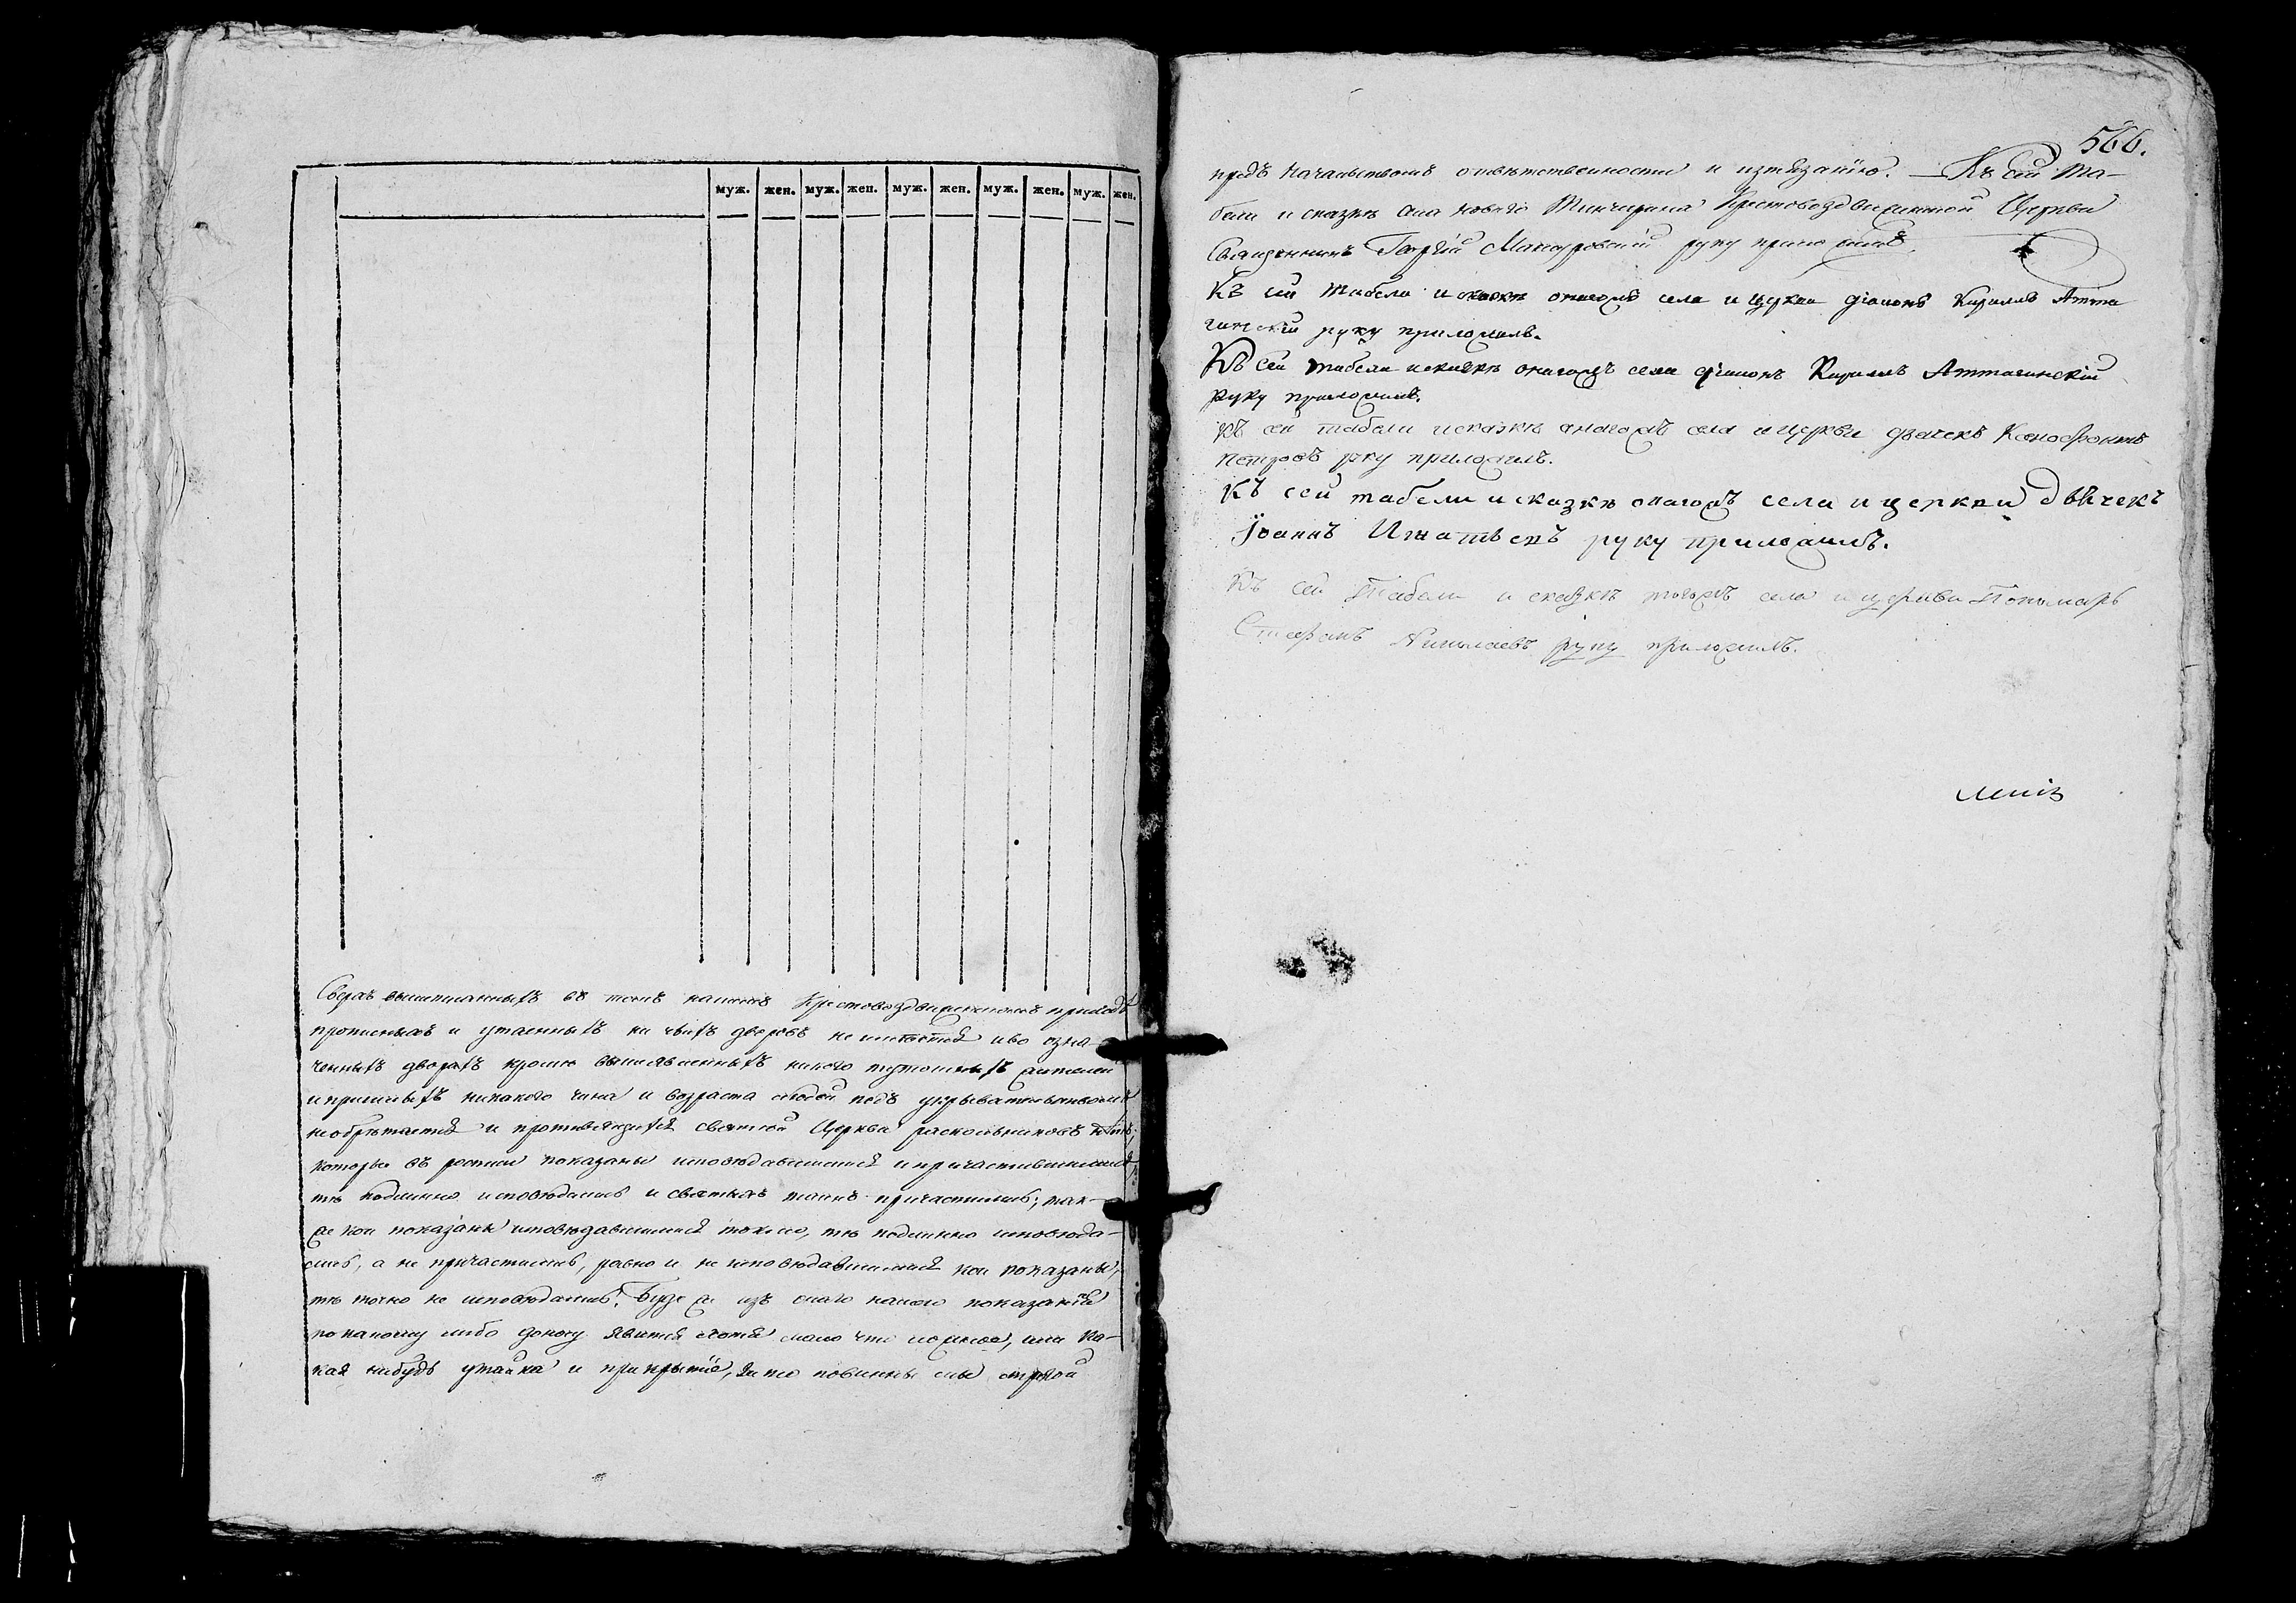 муж. жен. муж. жен. муж. жен. муж. жен. муж. жен.
Сверхъ вышеписанныхъ въ томъ нашемъ Крестовоздвиженскомъ приходѣ
прописныхъ и утаенныхъ ни чьихъ дворовъ не имѣется и во озна-
ченныхъ дворахъ кромѣ вышеявленныхъ никого тутошнихъ жителей
и пришлыхъ никакого чина и возраста людей подъ укрывательствомъ
не обрѣтается и противящихся святой Церкви раскольниковъ
которые въ росписи показаны исповѣдавшимися и причастившимися,
тѣ подлинно исповѣдались и святыхъ таинъ причастились; так-
же кои показаны исповѣдавшимися токмо, тѣ подлинно исповѣда-
лись, а не причастились, равно и не исповѣдавшимися кои показаны,
тѣ точно не исповѣдались. Буде же изъ сего нашего показанія
по какому либо доносу явится хотя мало что ложное, или ка-
кая нибудь утайка и прикрытіе, за то повинны мы строгой
566.
предъ начальствомъ отвѣтственности и изтязанію. — Къ сей та-
бели и сказкѣ села Новаго Тинчурина Крестовоздвиженской Церкви
Священникъ Георгій Макуровскій руку приложилъ.
Къ сей табели и сказкѣ онагожъ села и церкви діаконъ Кириллъ Атта
гинскій руку приложилъ.
Къ сей табели и сказкѣ онагожъ села діаконъ Кириллъ Аттагинскій
руку приложилъ.
Къ сей табели и сказкѣ онагожъ села и церкви дьячекъ Ксенофонтъ
Петровъ руку приложилъ.
Къ сей табели и сказкѣ онагожъ села и церкви дьячекъ
Іоаннъ Игнатьевъ руку приложилъ.
Къ сей Табели и сказкѣ тогожъ села и церкви Пономарь
Стефанъ Николаевъ руку приложилъ.